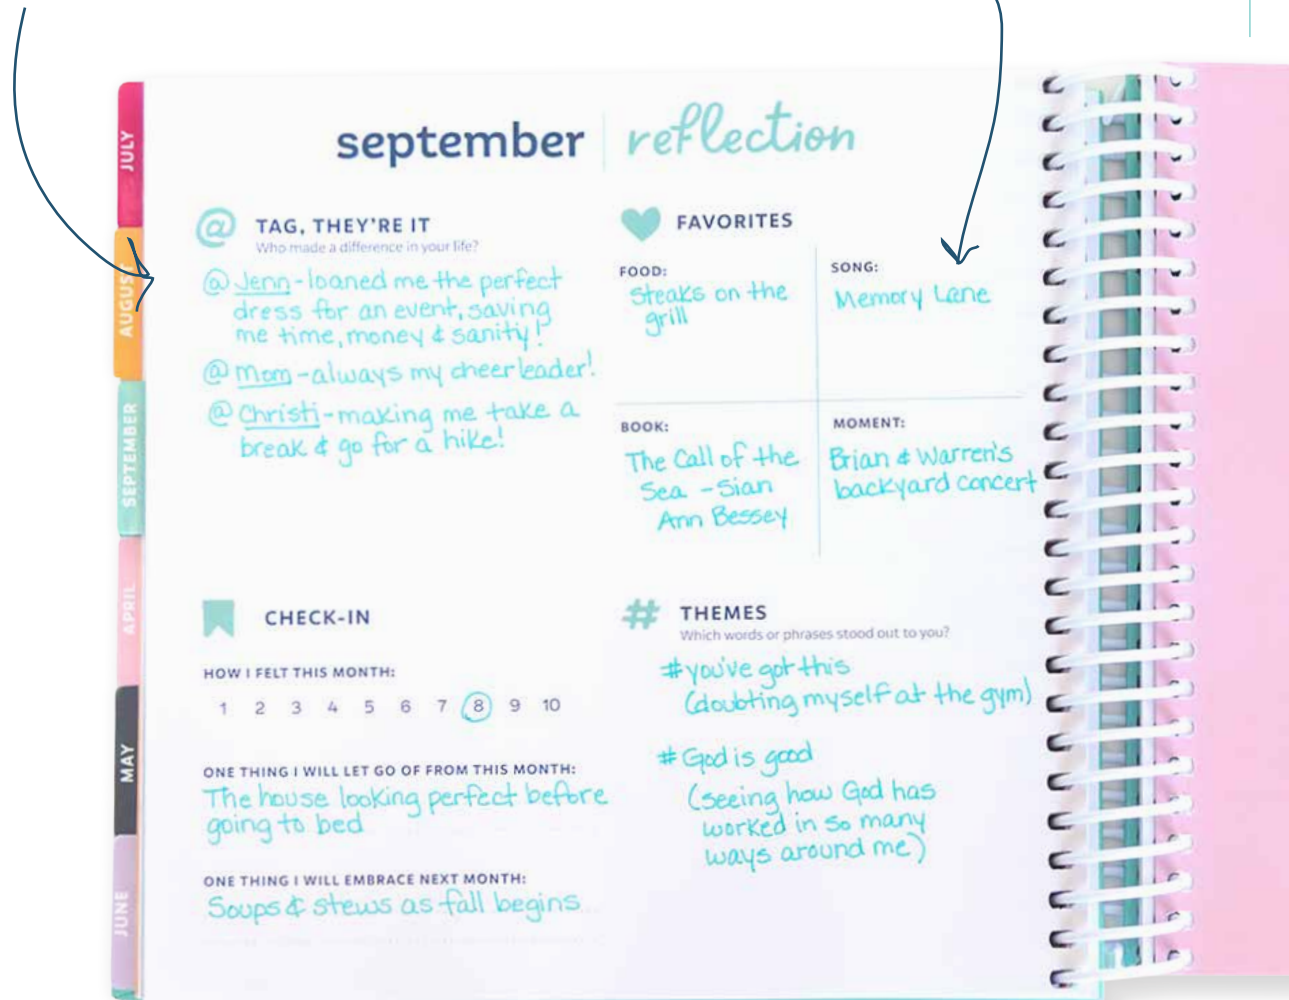 JULY
AUGUST
SEPTEMBER
APRIL
MAY
JUNE
september reflection
@ TAG, THEY'RE IT
Who made a difference in your life?
@ Jenn - loaned me the perfect
dress for an event, saving
me time, money & sanity!
@ Mom - always my cheerleader!
@ Christi - making me take a
break & go for a hike!
FAVORITES
FOOD:
Steaks on the
grill
SONG:
Memory Lane
BOOK:
The Call of the
Sea - Sian
Ann Bessey
MOMENT:
Brian & Warren's
backyard concert
CHECK-IN
HOW I FELT THIS MONTH:
1 2 3 4 5 6 7 8 9 10
ONE THING I WILL LET GO OF FROM THIS MONTH:
The house looking perfect before
going to bed
ONE THING I WILL EMBRACE NEXT MONTH:
Soups & stews as fall begins
# THEMES
Which words or phrases stood out to you?
#you've got this
(doubting myself at the gym)
#God is good
(seeing how God has
worked in so many
ways around me)